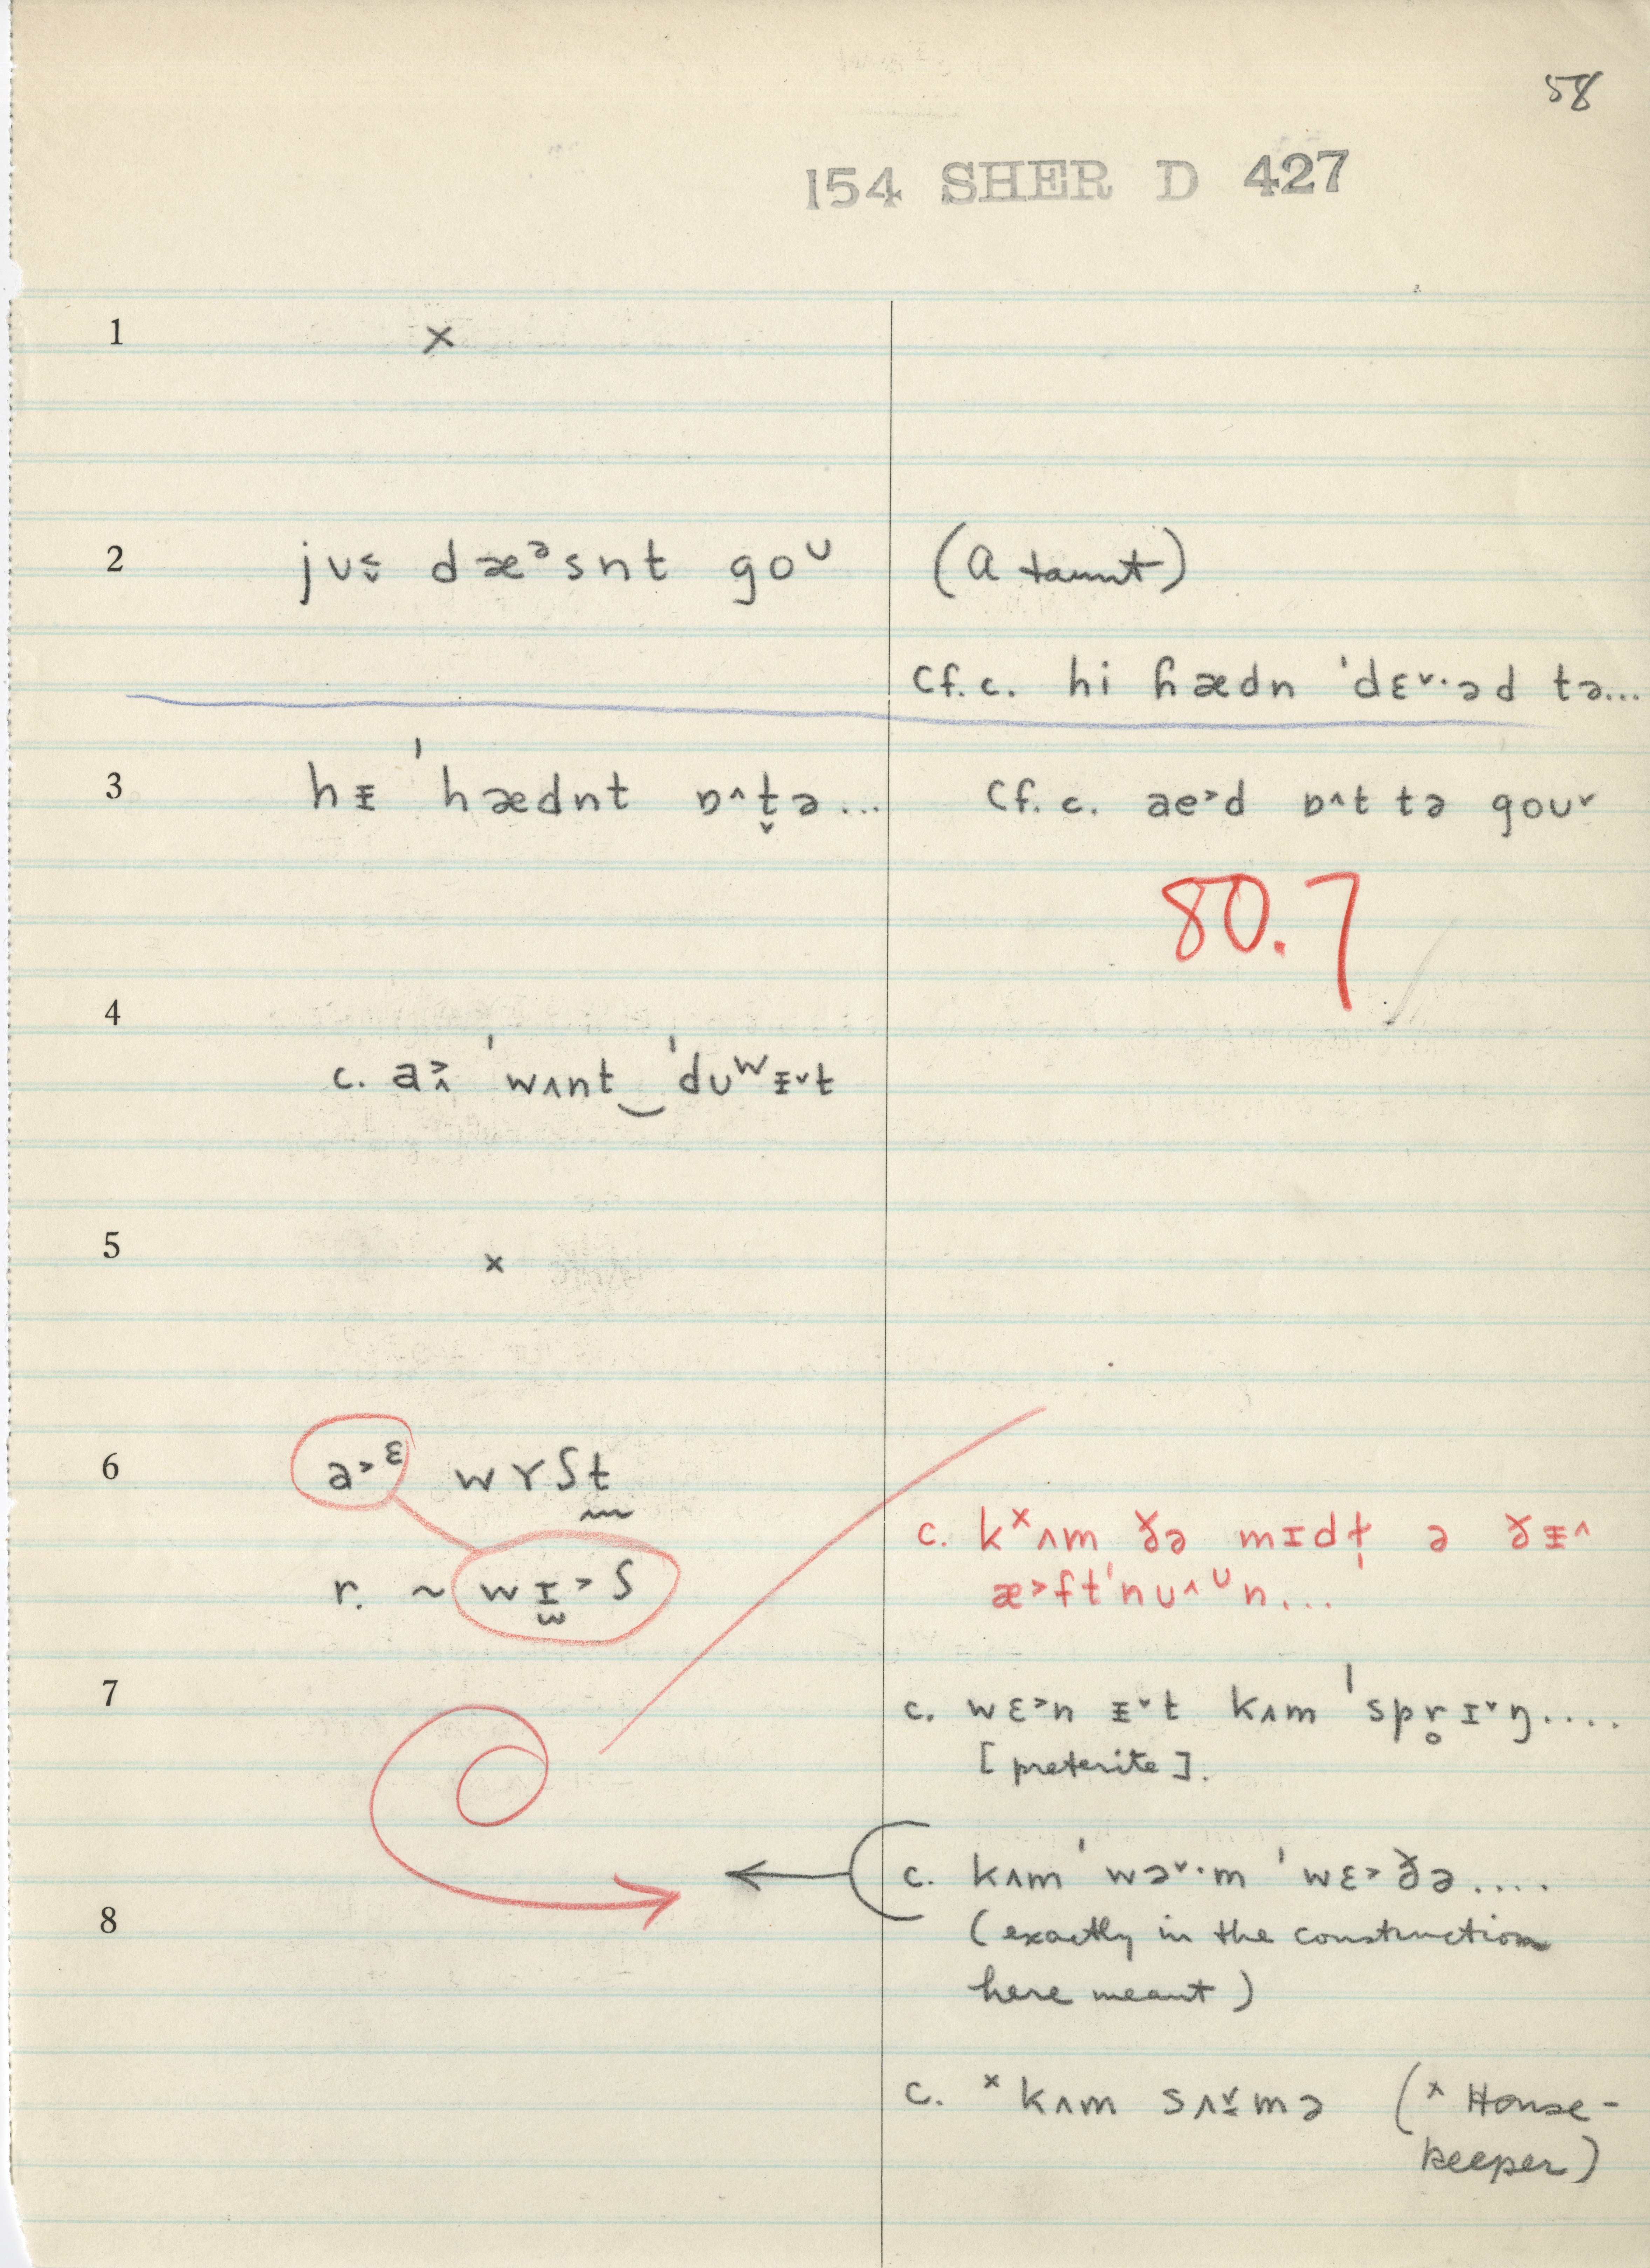 58
154 SHER D 427
1 ×
2 jʊ˂̬ dæᵊsnt goᴜ (a taunt)
cf. c. hi ɦædn ˈdɛ˅·əd tə...
3 hᵻ ˈhædnt ɒ˄t̬ə... cf. c. ae˃d ɒ˄t tə goʊ˅
80.7
4
c. a˃̭ ˈwʌnt‿ˈdʊʷᵻ˅t
5 ×
6 a˃ᵋ wʏʃt
r. ~ wɪ̫˃ʃ
c. kˣʌm ðə mɪdɫ̩ ə ðᵻ˄
æ˃ftˈnʊ˄ᵁn...
7 c. wɛ˃n ᵻ˅t kʌm ˈspr̥ɪ˅ŋ....
[preterite].
c. kʌm ˈwə˅·m ˈwɛ˃ðə....
8 (exactly in the construction
here meant)
c. ˣkʌm sʌ˅̱mə (ˣ House-
keeper)